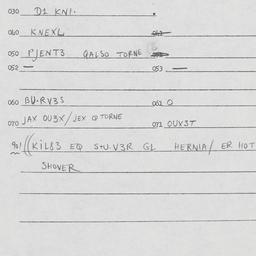 030 D1 KN1.
040 KNEXL
050 PJENT3 GALSO TORNE
052 — 053 —
060 BU.RV3S 061 O
070 JAX OU3X/JEX @ TORNE 071 OUX3T
((KIL83 EQ S+U.V3R GL HERNIA/ ER HOT
SHOVER